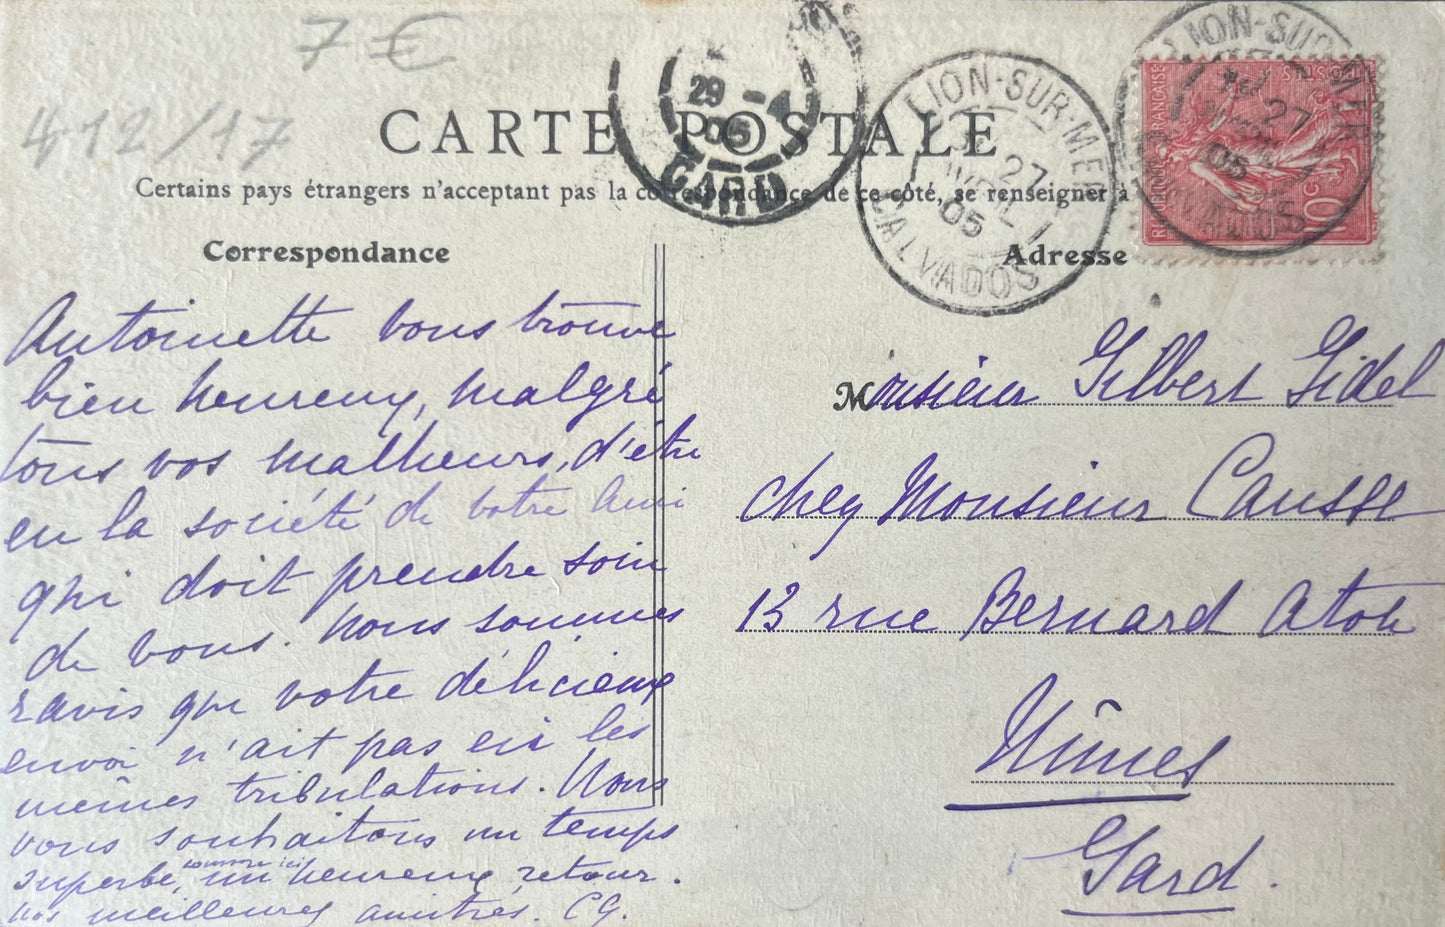 7 €
412/17
CARTE POSTALE
Certains pays étrangers n'acceptent pas la correspondance de ce côté, se renseigner à
Correspondance
Adresse
29 -4
05
GARD
LION-SUR-MER
27
AVRIL
05
CALVADOS
LION-SUR-MER
27
05
CALVADOS
POSTES
10c
Antoinette vous trouve
bien heureux, malgré
tous vos malheurs, d'être
en la société de votre ami
qui doit prendre soin
de vous. Nous sommes
ravis que votre délicieux
envoi n'ait pas eu les
mêmes tribulations. Nous
vous souhaitons un temps
superbe, comme ici un heureux retour.
Nos meilleures amitiés. CG.
Monsieur Gilbert Gidel
chez Monsieur Causse
13 rue Bernard Aton
Nîmes
Gard.